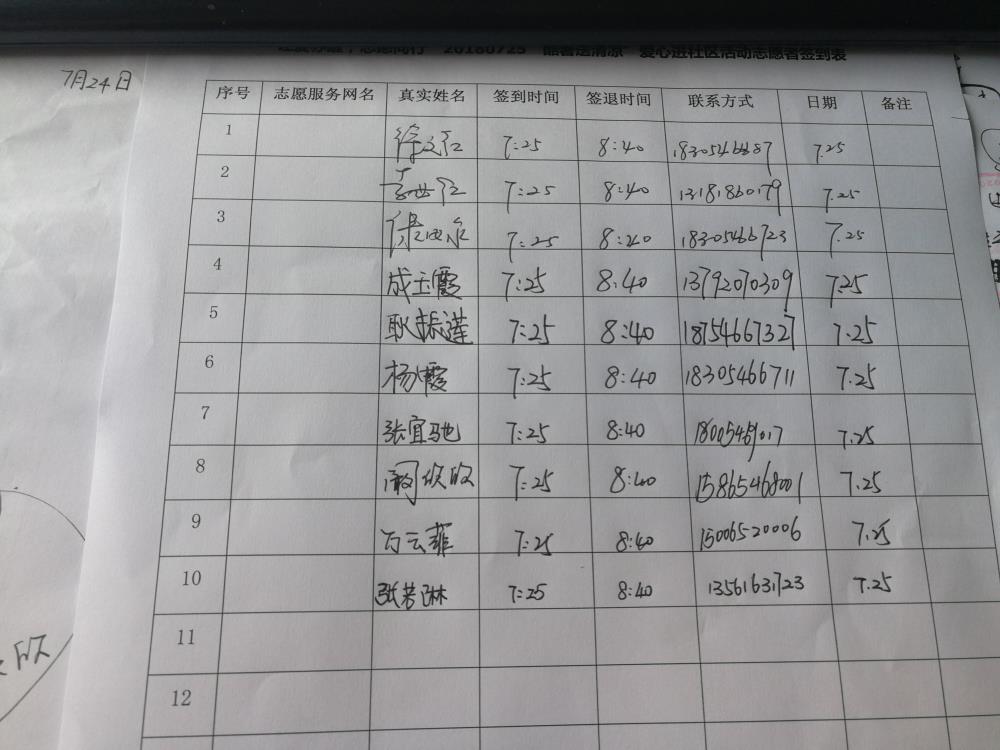 7月24日
志愿同行 20180725 酷暑送清凉 爱心进社区活动志愿者签到表
序号 志愿服务网名 真实姓名 签到时间 签退时间 联系方式 日期 备注
1 7:25 8:40 7.25
2 7:25 8:40 7.25
3 7:25 8:40 18305466723 7.25
4 成玉霞 7:25 8:40 13792070309 7.25
5 耿振莲 7:25 8:40 18754667327 7.25
6 杨霞 7:25 8:40 18305466711 7.25
7 张宜驰 7:25 8:40 7.25
8 7:25 8:40 15865468001 7.25
9 万云菲 7:25 8:40 15006520006 7.25
10 张若琳 7:25 8:40 13561631723 7.25
11
12